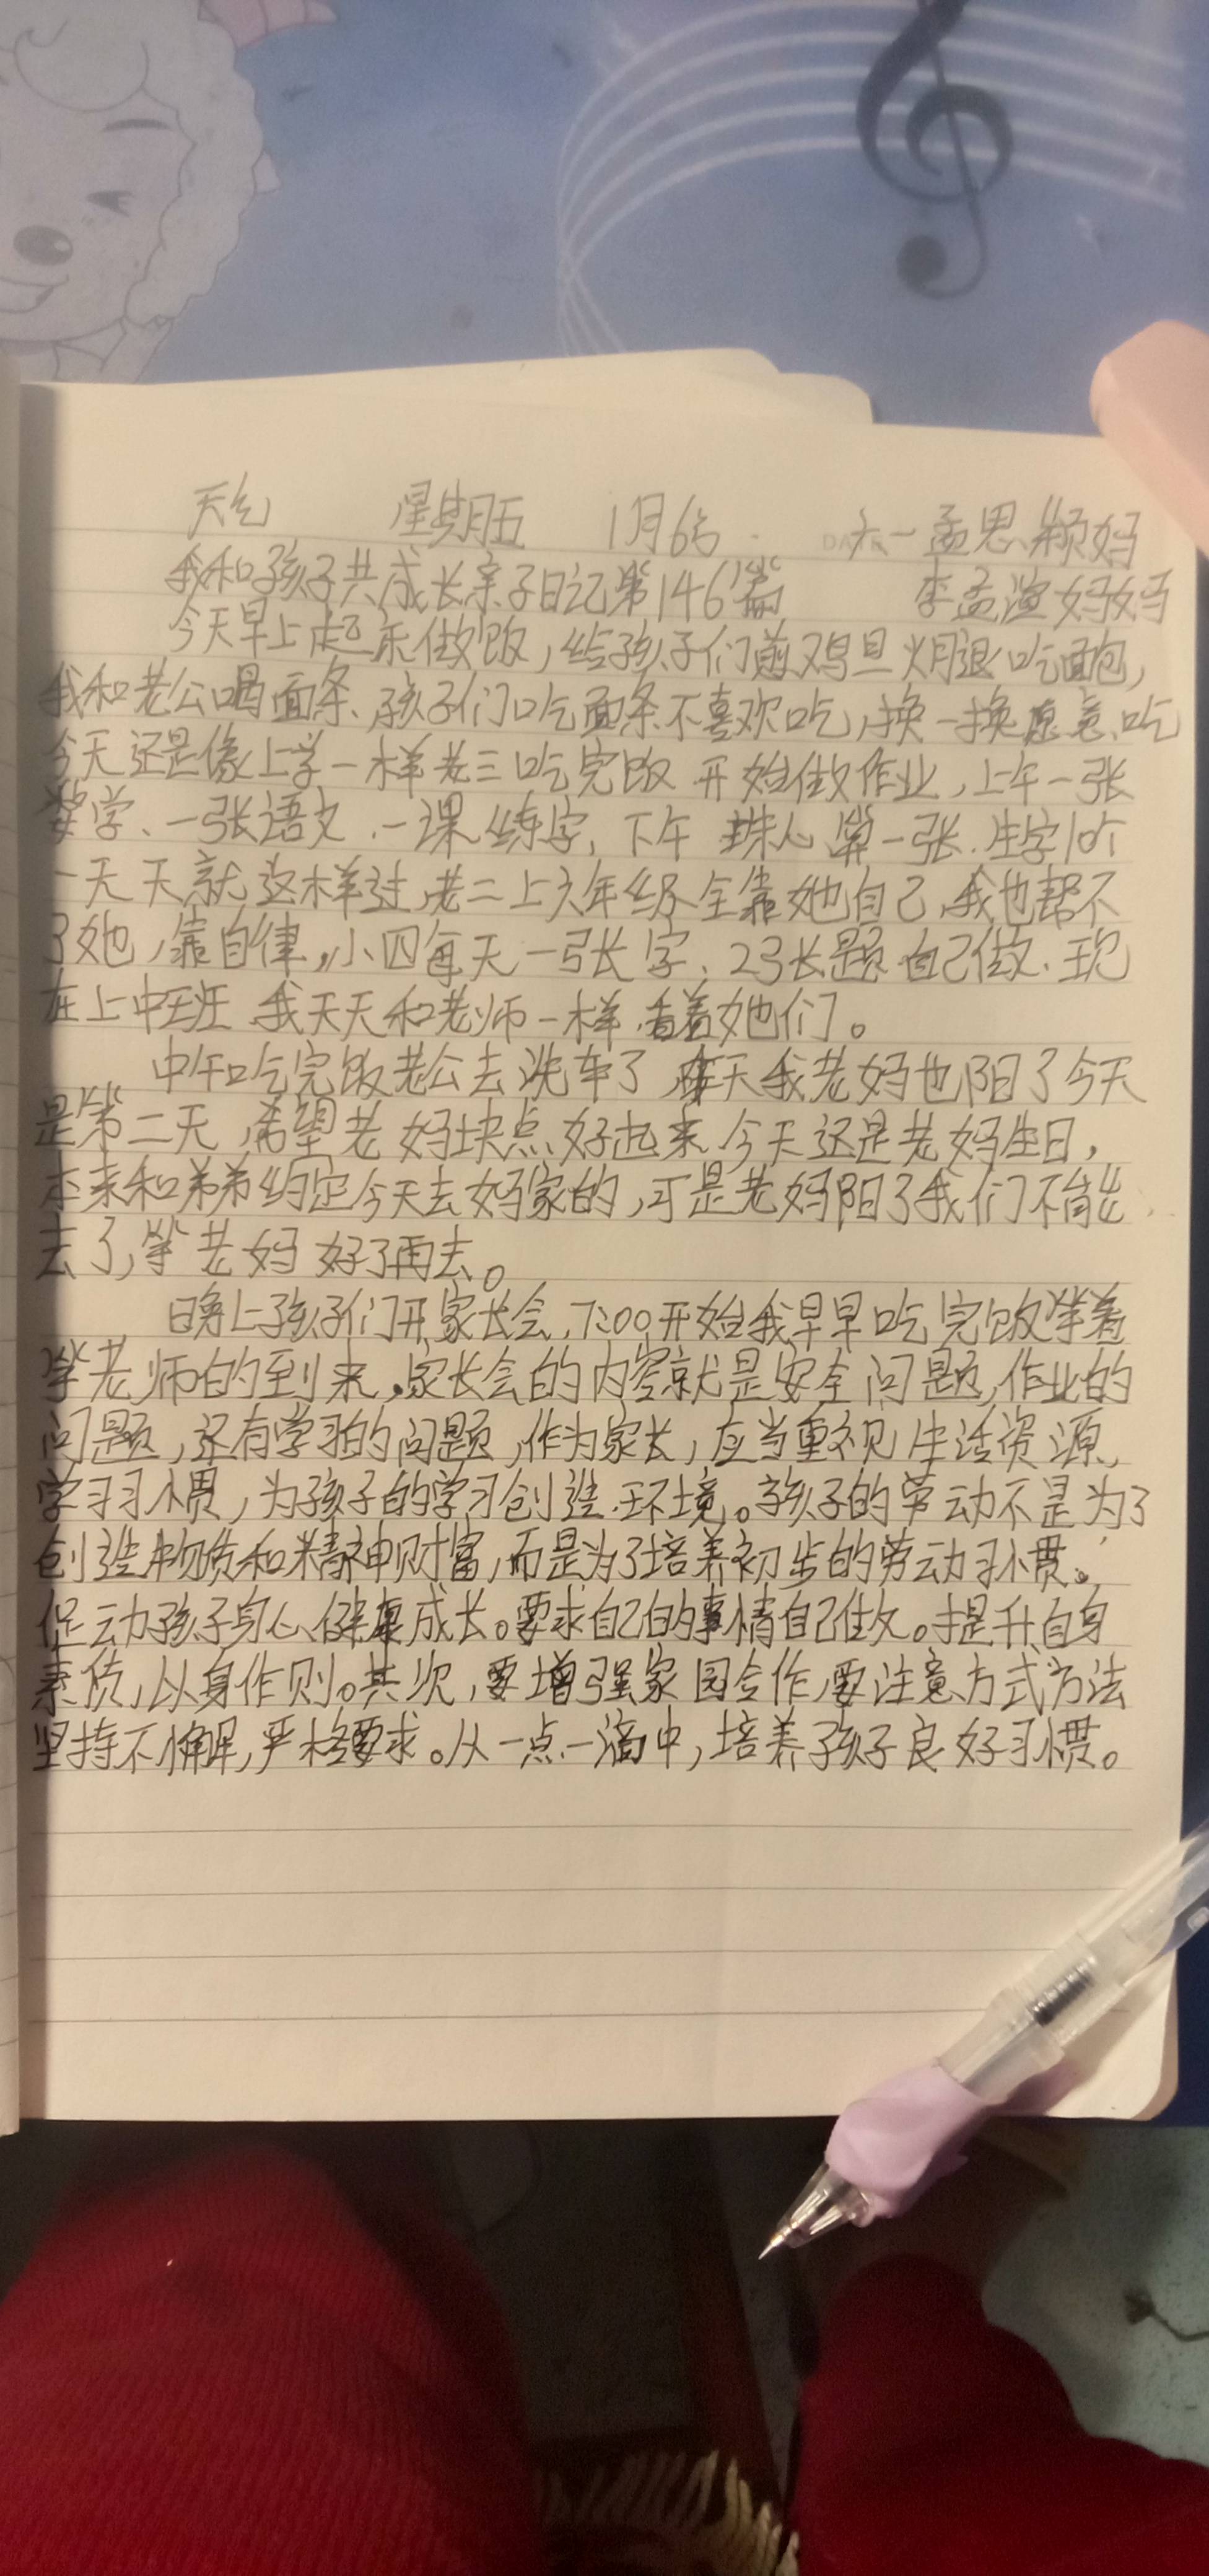 天气 星期五 1月6号 六一孟思颖妈
我和孩子共成长亲子日记第146篇 李孟渲妈妈
今天早上起来做饭,给孩子们煎鸡旦火腿吃面包,
我和老公喝面条、孩子们吃面条不喜欢吃,换一换愿意吃
今天还是像上学一样老三吃完饭开始做作业,上午一张
数学、一张语文、一课练字,下午珠心算一张.生字10个
一天天就这样过,老二上六年级全靠她自己,我也帮不
了她,靠自律,小四每天一张字、2张题自己做、现
在上中班,我天天和老师一样,看着她们。
中午吃完饭老公去洗车了,昨天我老妈也阳了今天
是第二天,希望老妈快点好起来,今天还是老妈生日,
本来和弟弟约定今天去妈家的,可是老妈阳了我们不能
去了,等老妈好了再去。
晚上孩子们开家长会,7:00开始我早早吃完饭等着
等老师的到来,家长会的内容就是安全问题,作业的
问题,还有学习的问题,作为家长,应当重视生活资源,
学习习惯,为孩子的学习创造环境。孩子的劳动不是为了
创造物质和精神财富,而是为了培养初步的劳动习惯。
促动孩子身心健康成长。要求自己的事情自己做。提升自身
素质,以身作则。其次,要增强家园合作,要注意方式方法
坚持不懈,严格要求。从一点一滴中,培养孩子良好习惯。